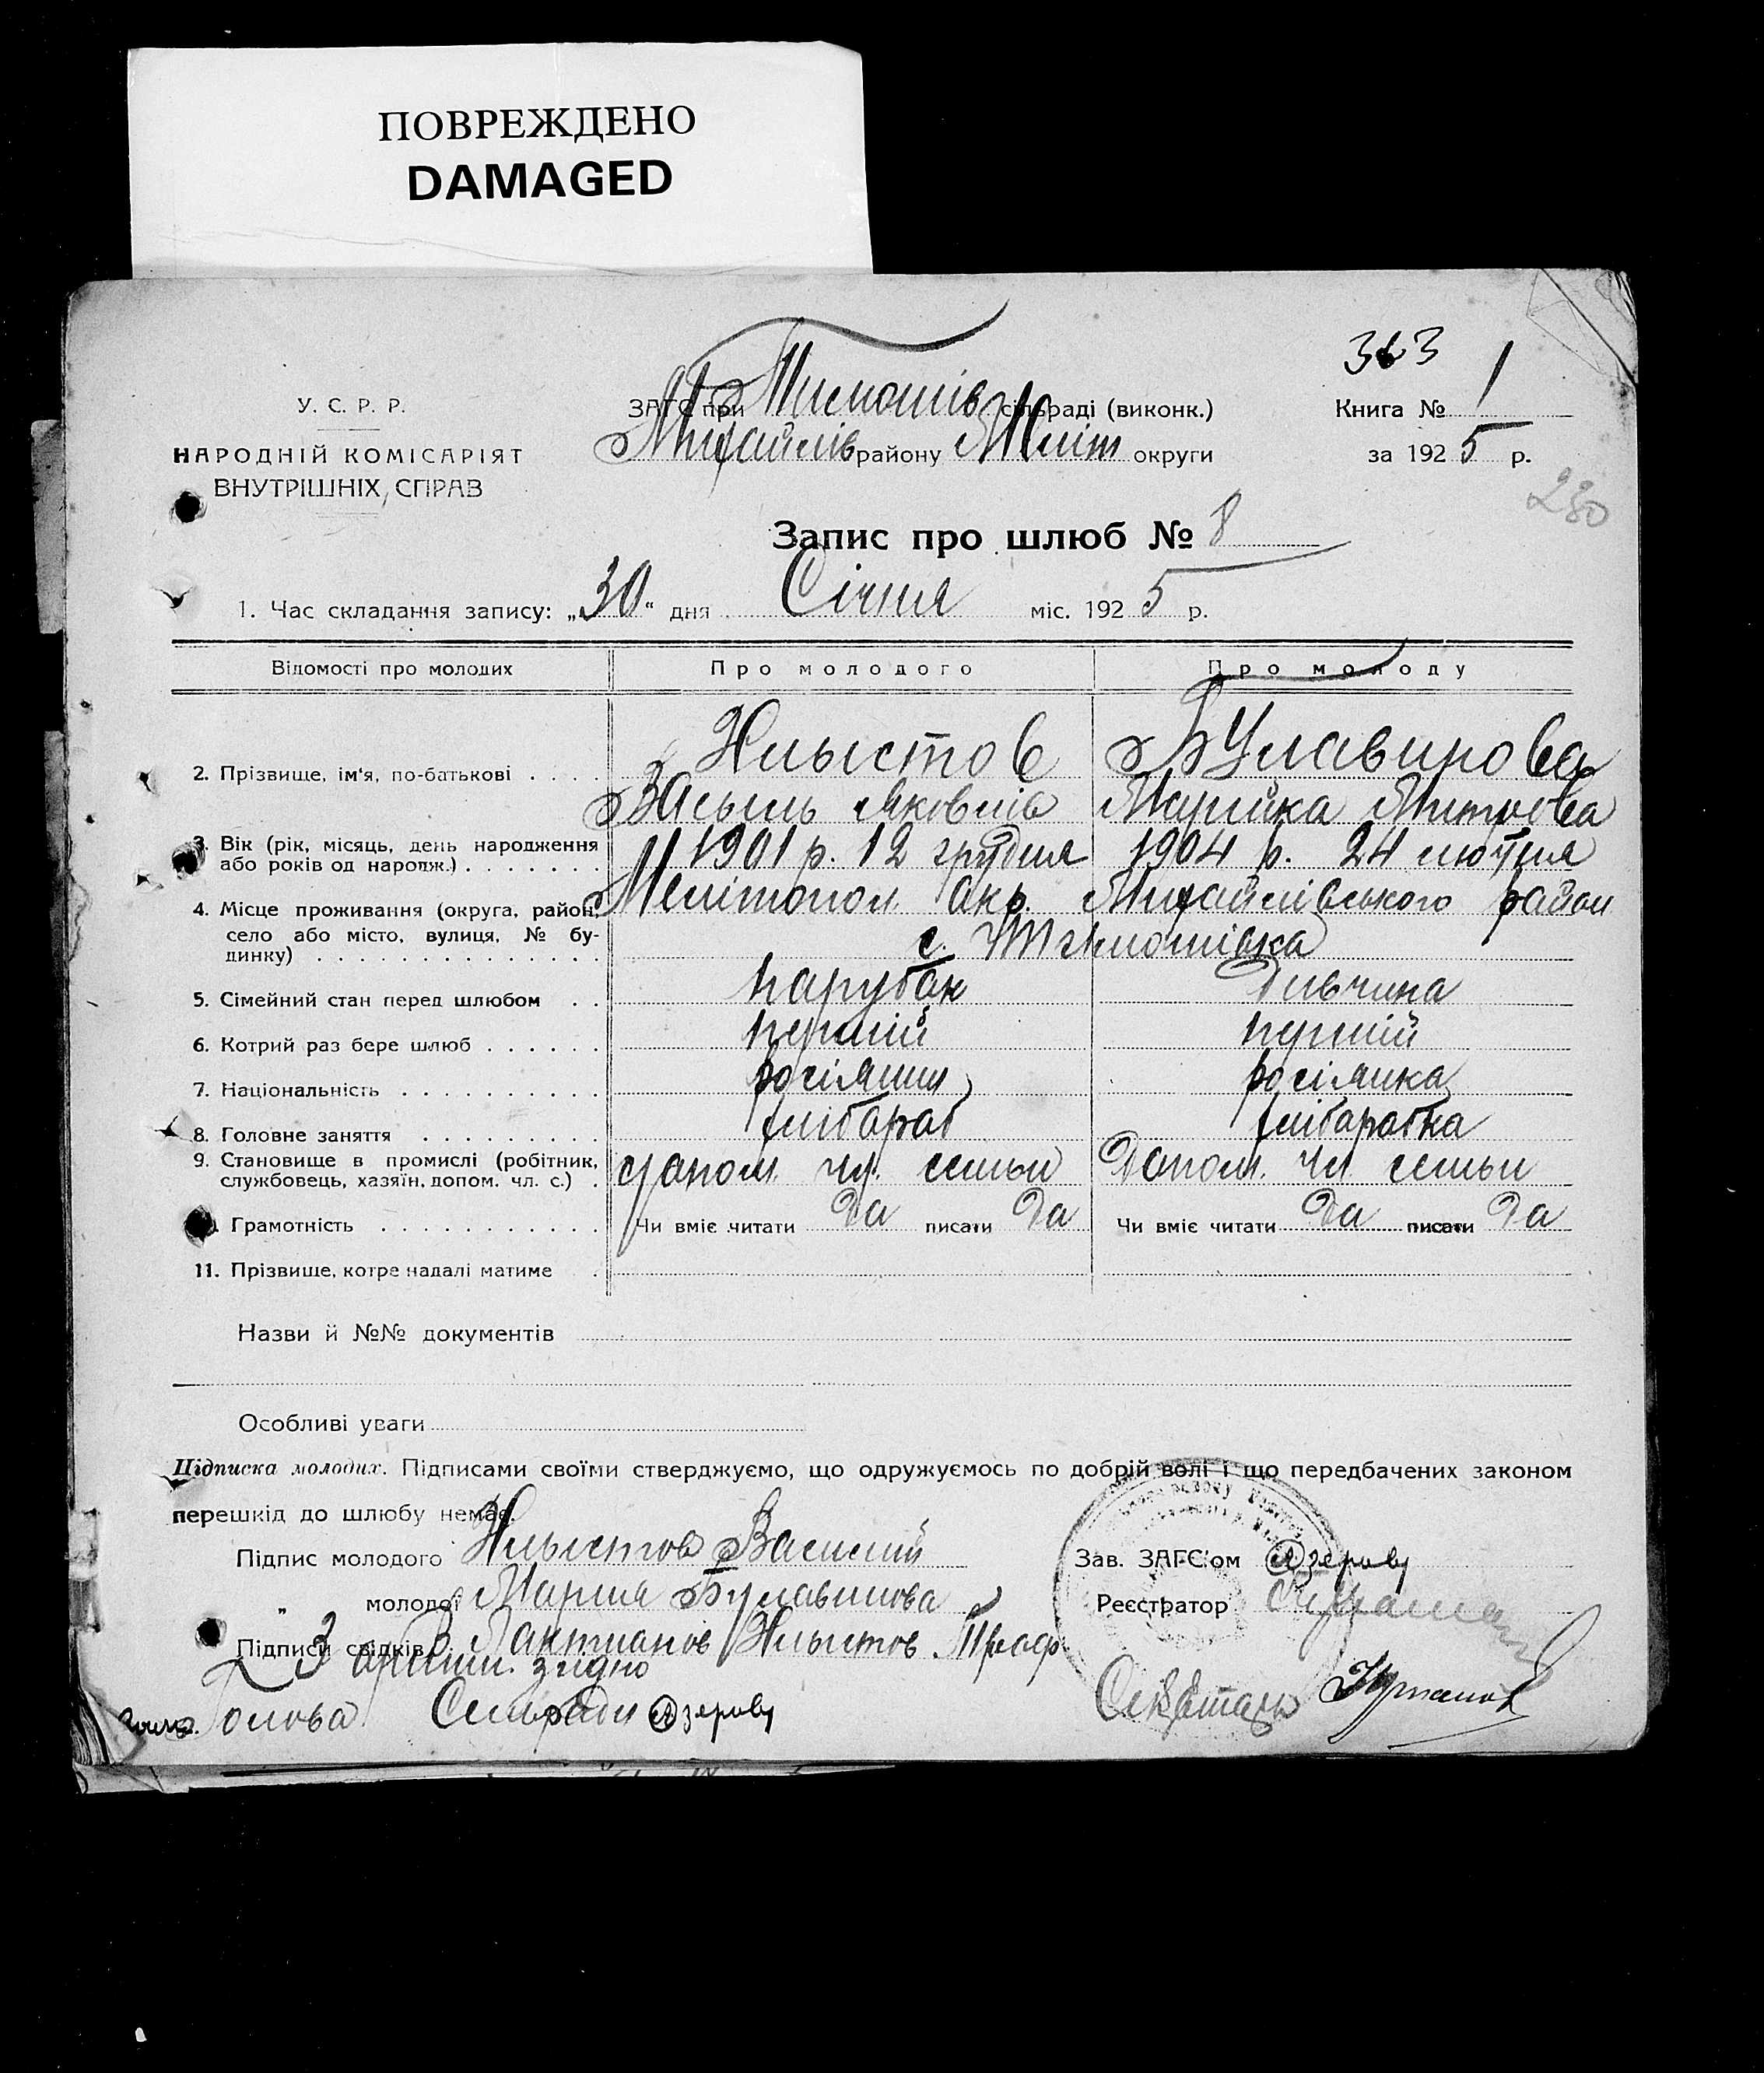 ПОВРЕЖДЕНО
DAMAGED
363
У. С. Р. Р.
ЗАГС при Тимошів сільраді (виконк.)
Книга № 1
НАРОДНІЙ КОМІСАРІЯТ
Михайлів району Меліт округи
за 1925 р.
ВНУТРІШНІХ СПРАВ
230
Запис про шлюб № 8
1. Час складання запису: „30“ дня Січня міс. 1925 р.
Відомості про молодих
Про молодого
Про молоду
2. Прізвище, ім'я, по-батькові . . . .
Хлыстов
Булавинова
Васыль Яковлів
Марийка Митрова
3. Вік (рік, місяць, день народження
або років од народж.) . . . . . . .
1901 р. 12 грудня
1904 р. 24 лютня
4. Місце проживання (округа, район,
село або місто, вулиця, № бу-
динку) . . . . . . . . . . . . . .
Мелітопол. окр. Михайлівського район
с. Тимошівка
5. Сімейний стан перед шлюбом . .
парубок
дивчина
6. Котрий раз бере шлюб . . . . . .
першій
першій
7. Національність . . . . . . . . . .
росіянин
росіянка
8. Головне заняття . . . . . . . . .
хлібароб
хлібаробка
9. Становище в промислі (робітник,
службовець, хазяїн, допом. чл. с.) .
допом. чл. семьи
допом. чл. семьи
Грамотність . . . . . . . . . . .
Чи вміє читати да писати да
Чи вміє читати да писати да
11. Прізвище, котре надалі матиме .
Назви й №№ документів
Особливі уваги
Підписка молодих. Підписами своїми стверджуємо, що одружуємось по добрій волі і що передбачених законом
перешкід до шлюбу немає.
Підпис молодого Хлыстов Василий
Зав. ЗАГС'ом
„ молодої Мария Булавинова
Реєстратор
Підписи свідків Лактианов Хлыстов
З оригин. згідно
Голова Сельради
Секретарь